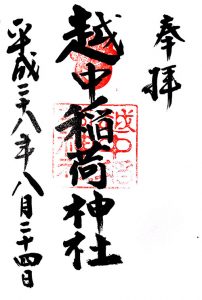 奉拝
越中稲荷神社
平成二十八年八月二十四日